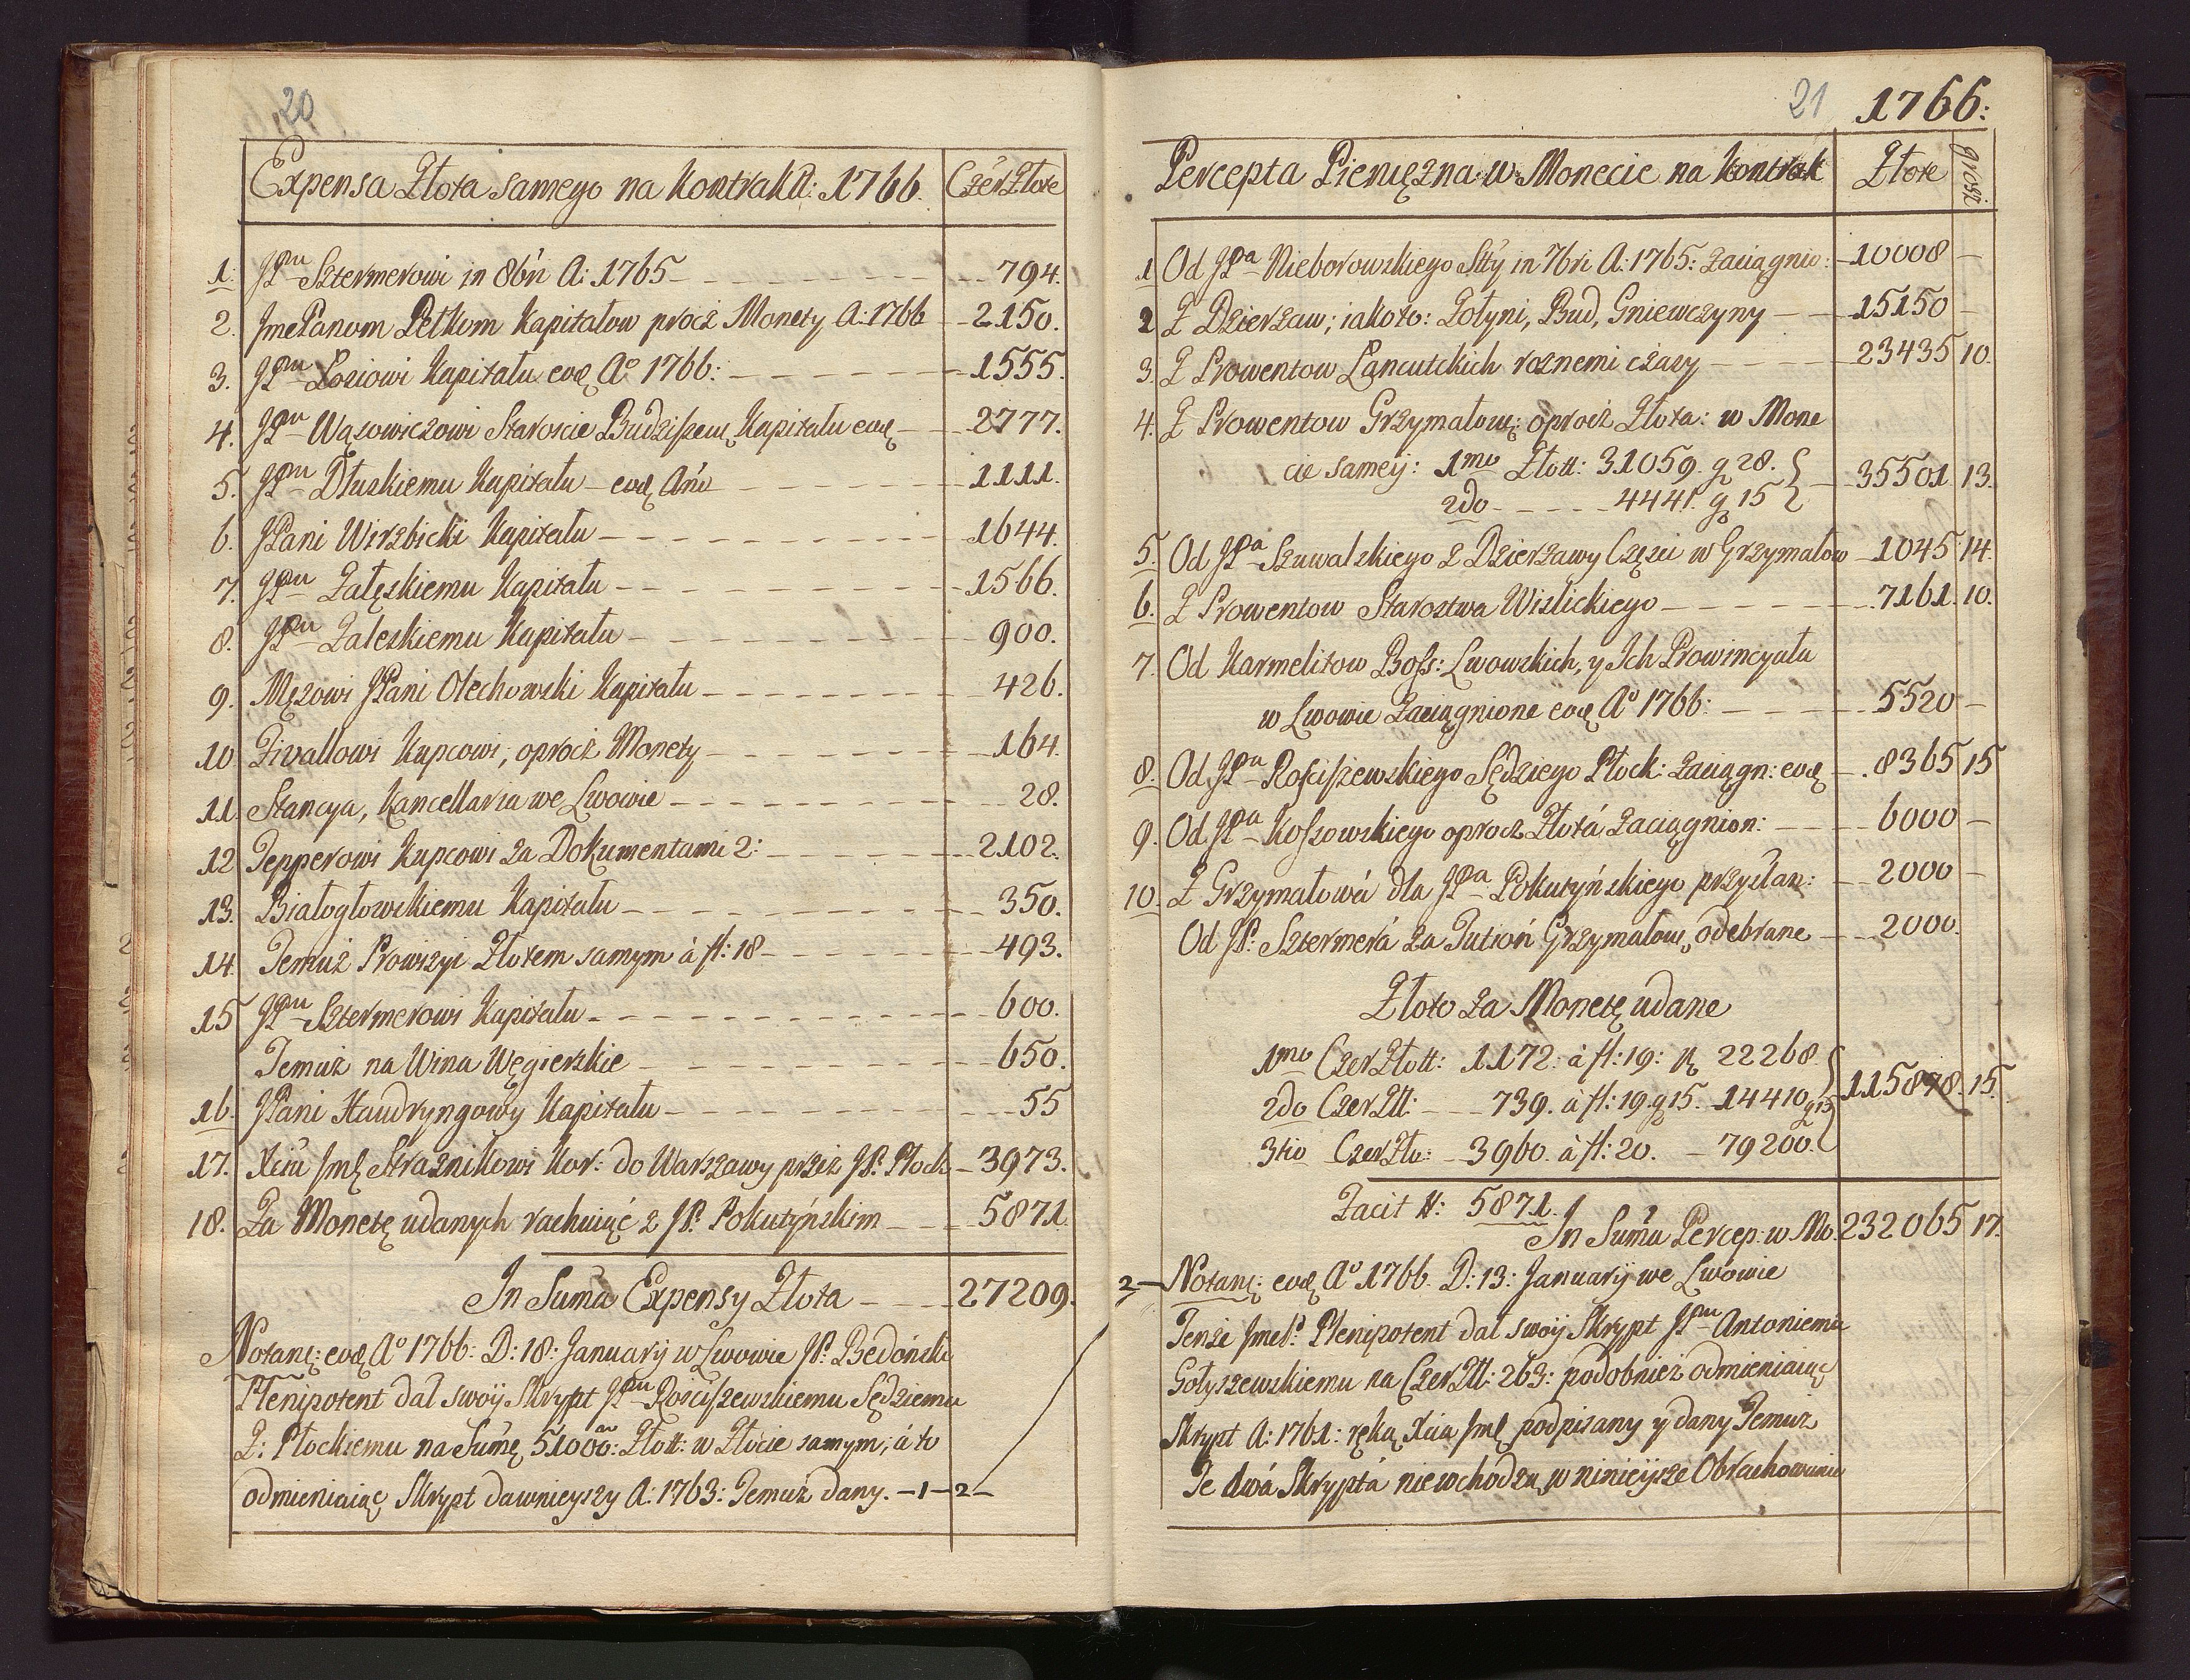 20
Expensa Złota samego na Kontrakt: 1766. CzerZłote
1. JPnu Sztermerowi in 8bri A: 1765 794.
2. JmcPanom Petkom Kapitałow procz Monety A: 1766 2150.
3. JPnu Łosiowi Kapitału eod Ao 1766: 1555.
4. JPnu Wąsowiczowi Staroscie Budziszew Kapitału eod 2777.
5. JPnu Dłuskiemu Kapitału eod Ańo 1111.
6. JPani Wirzbicki Kapitału 1644.
7. JPnu Załęskiemu Kapitału 1566.
8. JPnu Zaleskiemu Kapitału 900.
9. Mężowi JPani Olechowski Kapitału 426.
10 Zivallowi Kupcowi, oprocz Monety 164.
11. Stancya, Kancellaria we Lwowie 28.
12 Tepperowi Kupcowi za Dokumentami 2: 2102.
13. Białogłowskiemu Kapitału 350.
14. Temuż Prowizyi Złotem samym à fl: 18 493.
15 JPnu Sztermerowi Kapitału 600.
Temuż na Wina Węgierskie 650.
16. JPani Haudryngowy Kapitału 55
17. Xciu Jmę Strażnikowi Kor: do Warszawy przez JP. Płock 3973.
18. Za Monetę udanych rachuiąc z JP. Pokutyńskim 5871.
In Suma Expensy Złota 27209.
Notand: eod Ao 1766: D: 18: January w Lwowie JP. Bedoński
Plenipotent dał swoy Skrypt JPnu Rościszewskiemu Sędziemu
Z: Płockiemu na Sumę 51000: Złott: w Złocie samym, á to
odmieniaiąc Skrypt dawnieyszy A: 1763: Temuż dany. -1-2-
21 1766:
Percepta Pieniężna w Monecie na Kontrak Złote grosz
1 Od JPa Nieborowskiego Stty in 7bri A: 1765: zaciągnio: 10008 -
2 Z Dzierżaw; iakoto: Żołyni, Bud, Gniewczyny 15150 -
3. Z Prowentow Łancutckich roznemi czasy 23435 10.
4. Z Prowentow Grzymałow: oprocz Złota: w Mone
cie samey: 1mo Złott: 31059. g 28.
2do 4441. g 15 35501 13.
5. Od JPa Szuwalskiego z Dzierżawy Części w Grzymałow 1045 14.
6. Z Prowentow Starostwa Wislickiego 7161. 10.
7. Od Karmelitow Boss: Lwowskich, y Ich Prowincyała
w Lwowie Zaciągnione eod Ao 1766: 5520 -
8. Od JPa Rosciszewskiego Sędziego Płock: zaciągn: eod 8365 15
9. Od JPa Kossowskiego oprocz Złotá, zaciągnion: 6000 -
10. Z Grzymałowá dla JPa Pokutyńskiego przysłan: 2000 -
Od JP: Sztermerá za Tutioń Grzymałow odebrane 2000.
Złoto za Monetę udane
1mo CzerZłott: 1172: à fl: 19: 22268.
2do CzerZłł: 739. à fl: 19. g 15. 14410. g 15 115878. 15.
3tio CzerZło: 3960. à fl: 20. 79200.
Facit #: 5871.
In Suma Percep: w Mo. 232065 17.
2 Notand: eod Ao 1766. D: 13: January we Lwowie
Tenże JmcP. Plenipotent dał swoy Skrypt JPnu Antoniemu
Gołyszewskiemu na CzerZłł: 263: podobnież odmieniaiąc
Skrypt A: 1761: ręką Xcia Jmę podpisany y dany Temuż
Te dwá Skryptá niewchodzą w ninieysze Obrachowanie